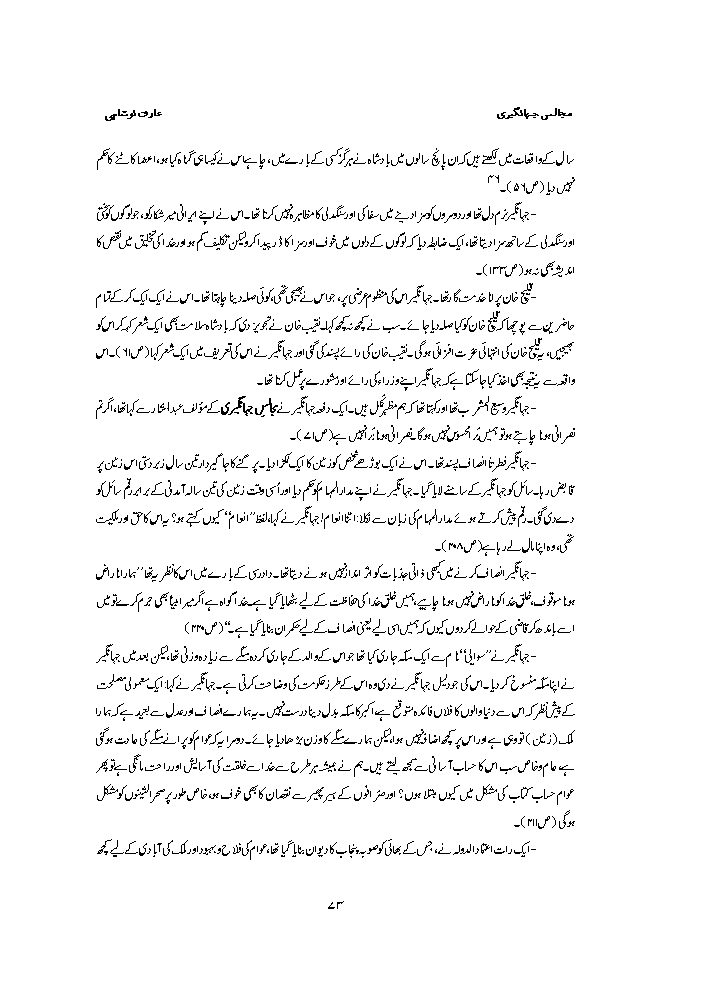 مجالسِ جہانگیری
عارف نوشاہی
سال کے واقعات میں لکھتے ہیں کہ ان پانچ سالوں میں بادشاہ نے ہرگز کسی کے بارے میں، چاہے اس نے کیسا ہی گناہ کیا ہو، اعضا کاٹنے کا حکم
نہیں دیا (ص ۵۶)۔۴۶
-جہانگیر نرم دل تھا اور دوسروں کو سزا دینے میں سفاکی اور سنگدلی کا مظاہرہ نہیں کرتا تھا۔ اس نے اپنے ایرانی میر شکار کو، جو لوگوں کو سختی
اور سنگدلی کے ساتھ سزا دیتا تھا، ایک ضابطہ دیا کہ لوگوں کے دلوں میں خوف اور سزا کا ڈر پیدا کرو لیکن تکلیف کم ہو اور خدا کی تخلیق میں نقص کا
اندیشہ بھی نہ ہو (ص ۱۳۳)۔
-قلیج خان پرانا خدمت گار تھا۔ جہانگیر اس کی منظوم عرضی پر، جو اس نے بھیجی تھی، کوئی صلہ دینا چاہتا تھا۔ اس نے ایک ایک کر کے تمام
حاضرین سے پوچھا کہ قلیج خان کو کیا صلہ دیا جائے۔ سب نے کچھ نہ کچھ کہا۔ نقیب خان نے تجویز دی کہ بادشاہ سلامت بھی ایک شعر کہہ کر اس کو
بھیجیں، یہ قلیج خان کی انتہائی عزت افزائی ہوگی۔ نقیب خان کی رائے پسند کی گئی اور جہانگیر نے اس کی تعریف میں ایک شعر کہا (ص ۶۱)۔ اس
واقعہ سے یہ نتیجہ بھی اخذ کیا جا سکتا ہے کہ جہانگیر اپنے وزراء کی رائے اور مشورے پر عمل کرتا تھا۔
-جہانگیر وسیع المشرب تھا اور کہتا تھا کہ ہم مظہرِ کل ہیں۔ ایک دفعہ جہانگیر نے مجالسِ جہانگیری کے مؤلف عبدالستار سے کہا تھا، اگر تم
نصرانی ہونا چاہتے ہو تو ہمیں بُرا محسوس نہیں ہوگا۔ نصرانی ہونا بُرا نہیں ہے (ص ۷۱)۔
-جہانگیر فطرتاً انصاف پسند تھا۔ اس نے ایک بوڑھے شخص کو زمین کا ایک ٹکڑا دیا۔ پرگنے کا جاگیردار تین سال زبردستی اس زمین پر
قابض رہا۔ سائل کو جہانگیر کے سامنے لایا گیا۔ جہانگیر نے اپنے مدارالمہام کو حکم دیا اور اُسی وقت زمین کی تین سالہ آمدنی کے برابر رقم سائل کو
دے دی گئی۔ رقم پیش کرتے ہوئے مدارالمہام کی زبان سے نکلا: اتنا انعام! جہانگیر نے کہا، لفظ ”انعام“ کیوں کہتے ہو؟ یہ اس کا حق اور ملکیت
تھی، وہ اپنا مال لے رہا ہے (ص ۲۰۸)۔
-جہانگیر انصاف کرنے میں کبھی ذاتی جذبات کو اثر انداز نہیں ہونے دیتا تھا۔ دادرسی کے بارے میں اس کا نظریہ تھا ”ہمارا ناراض
ہونا موقوف، خلقِ خدا کو ناراض نہیں ہونا چاہیے، ہمیں خلقِ خدا کی حفاظت کے لیے بٹھایا گیا ہے۔ خدا گواہ ہے اگر میرا بیٹا بھی جرم کرے تو میں
اسے باندھ کر قاضی کے حوالے کردوں کیوں کہ ہمیں اسی لیے یعنی انصاف کے لیے حکمران بنایا گیا ہے۔“ (ص ۲۲۰)
-جہانگیر نے ”سوائی“ نام سے ایک سکہ جاری کیا تھا جو اس کے والد کے جاری کردہ سکے سے زیادہ وزنی تھا، لیکن بعد میں جہانگیر
نے اپنا سکہ منسوخ کر دیا۔ اس کی جو دلیل جہانگیر نے دی وہ اس کے طرزِ حکومت کی وضاحت کرتی ہے۔ جہانگیر نے کہا: ایک معمولی مصلحت
کے پیش نظر کہ اس سے دنیا والوں کا فلاں فائدہ متوقع ہے، اکبر کا سکہ بدل دینا درست نہیں۔ یہ ہمارے انصاف اور عدل سے بعید ہے کہ ہمارا
ملک (زمین) تو وہی ہے اور اس پر کچھ اضافہ نہیں ہوا، لیکن ہمارے سکے کا وزن بڑھا دیا جائے۔ دوسرا یہ کہ عوام کو پرانے سکے کی عادت ہوگئی
ہے، عام و خاص سب اس کا حساب آسانی سے سمجھ لیتے ہیں۔ ہم نے ہمیشہ ہر طرح سے خدا سے خلقت کی آسایش اور راحت مانگی ہے تو پھر
عوام حساب کتاب کی مشکل میں کیوں مبتلا ہوں؟ اور صرافوں کے ہیر پھیر سے نقصان کا بھی خوف ہو، خاص طور پر صحرا نشینوں کو مشکل
ہوگی (ص ۲۱۱)۔
-ایک رات اعتماد الدولہ نے، جس کے بھائی کو صوبہ پنجاب کا دیوان بنایا گیا تھا، عوام کی فلاح و بہبود اور ملک کی آبادی کے لیے کچھ
۷۳